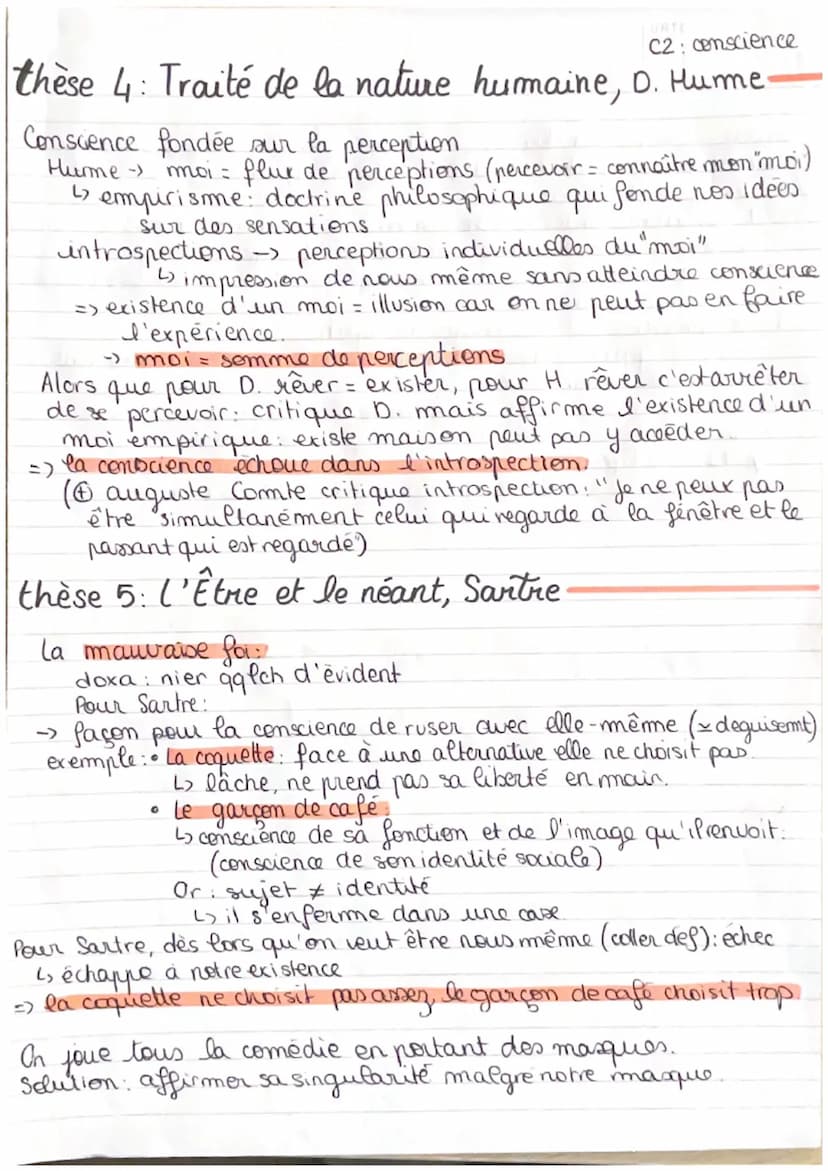 C2 : conscience
thèse 4 : Traité de la nature humaine, D. Hume
Conscience fondée sur la perception
Hume -> moi = flux de perceptions (percevoir = connaître mon "moi)
↳ empirisme : doctrine philosophique qui fonde nos idées
sur des sensations
introspections -> perceptions individuelles du "moi"
↳ impression de nous même sans atteindre conscience
=> existence d'un moi = illusion car on ne peut pas en faire
l'expérience.
-> moi = somme de perceptions
Alors que pour D. rêver = exister, pour H. rêver c'est arrêter
de se percevoir : critique D. mais affirme l'existence d'un
moi empirique : existe mais on peut pas y accéder.
=> la conscience échoue dans l'introspection.
(⊕ auguste Comte critique introspection : "Je ne peux pas
être simultanément celui qui regarde à la fenêtre et le
passant qui est regardé")
thèse 5 : L'Être et le néant, Sartre
La mauvaise foi :
doxa : nier qqlch d'évident
Pour Sartre :
-> façon pour la conscience de ruser avec elle-même (≃ deguisemt)
exemple : • La coquette : face à une alternative elle ne choisit pas.
↳ lâche, ne prend pas sa liberté en main.
• Le garçon de café :
↳ conscience de sa fonction et de l'image qu'il renvoit.
(conscience de son identité sociale)
Or : sujet ≠ identité
↳ il s'enferme dans une case
Pour Sartre, dès lors qu'on veut être nous même (coller def) : échec
↳ échappe à notre existence
=> la coquette ne choisit pas assez, le garçon de café choisit trop.
On joue tous la comédie en portant des masques.
Solution : affirmer sa singularité malgré notre masque.